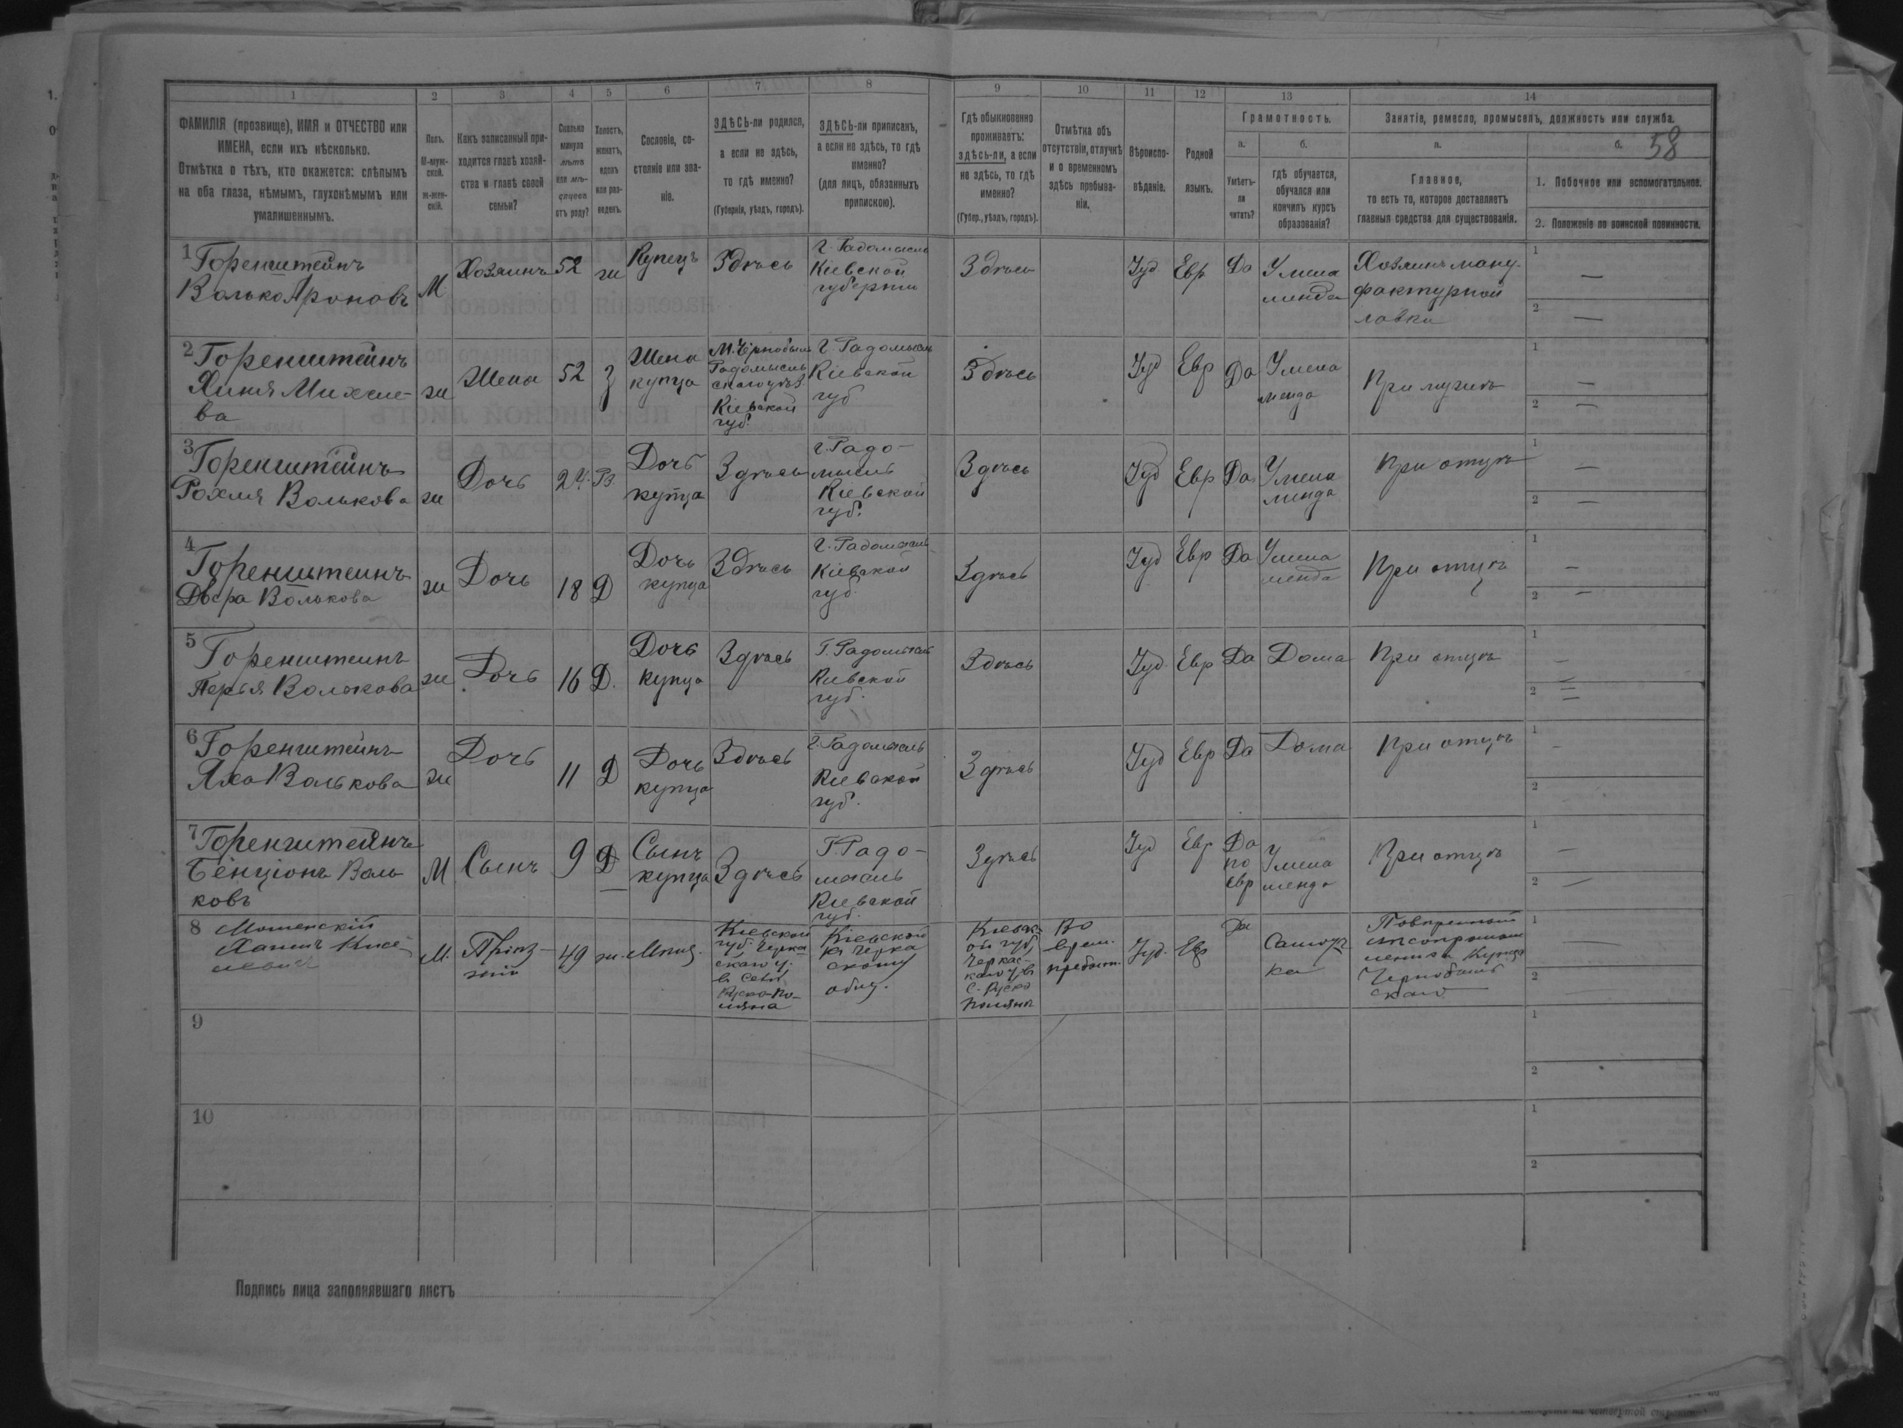 58
1 2 3 4 5 6 7 8 9 10 11 12 13 14
ФАМИЛІЯ (прозвище), ИМЯ и ОТЧЕСТВО или
ИМЕНА, если ихъ нѣсколько.
Отмѣтка о тѣхъ, кто окажется: слѣпымъ
на оба глаза, нѣмымъ, глухонѣмымъ или
умалишеннымъ.
Полъ.
М-муж-
ской.
Ж-жен-
скій.
Какъ записанный при-
ходится главѣ хозяй-
ства и главѣ своей
семьи?
Сколько
минуло
лѣтъ
или мѣ-
сяцевъ
отъ роду?
Холостъ,
женатъ,
вдовъ
или раз-
веденъ.
Сословіе, со-
стояніе или зва-
ніе.
ЗДѢСЬ-ли родился,
а если не здѣсь,
то гдѣ именно?
(Губернія, уѣздъ, городъ).
ЗДѢСЬ-ли приписанъ,
а если не здѣсь, то гдѣ
именно?
(для лицъ, обязанныхъ
припискою).
Гдѣ обыкновенно
проживаетъ:
здѣсь-ли, а если
не здѣсь, то гдѣ
именно?
(Губер., уѣздъ, городъ).
Отмѣтка объ
отсутствіи, отлучкѣ
и о временномъ
здѣсь пребыва-
ніи.
Вѣроиспо-
вѣданіе.
Родной
языкъ.
Грамотность.
а.
Умѣетъ-
ли
читать?
б.
гдѣ обучается,
обучался или
кончилъ курсъ
образованія?
Занятіе, ремесло, промыселъ, должность или служба.
а.
Главное,
то есть то, которое доставляетъ
главныя средства для существованія.
б.
1. Побочное или вспомогательное.
2. Положеніе по воинской повинности.
1 Горенштейнъ
Волько Ароновъ
М
Хозяинъ
52
ж
Купецъ
Здѣсь
Г. Радомысль
Кіевской
губерніи
Здѣсь
Іуд
Евр
Да
У мела
меда
Хозяинъ ману-
фактурной
лавки
1 —
2 —
2 Горенштейнъ
Ханя Михеле-
ва
ж
Жена
52
З
Жена
купца
М. Чернобыль
Радомысль
скаго уѣз
Кіевской
губ.
Г. Радомысль
Кіевской
губ
Здѣсь
Іуд
Евр
Да
При мужѣ
1 —
2 —
3 Горенштейнъ
Рохля Волькова
ж
Дочь
24
Дочь
купца
Здѣсь
г. Радо-
мысль
Кіевской
губ.
Здѣсь
Іуд
Евр
Да
При отцѣ
1 —
2 —
4 Горенштейнъ
Двера Волькова
ж
Дочь
18
Д
Дочь
купца
Здѣсь
Г. Радомысль
Кіевской
губ
Здѣсь
Іуд
Евр
Да
При отцѣ
1 —
2 —
5 Горенштейнъ
Перля Волькова
ж
Дочь
16
Д.
Дочь
купца
Здѣсь
Г. Радомысль
Кіевской
губ.
Здѣсь
Іуд.
Евр
Да
Дома
При отцѣ
1 —
2 —
6 Горенштейнъ
Волькова
ж
Дочь
11
Д
Дочь
купца
Здѣсь
Г. Радомысль
Кіевской
губ.
Здѣсь
Іуд
Евр
Да
Дома
При отцѣ
1 —
2
7 Горенштейнъ
Бенціонъ Воль
ковъ
М
Сынъ
9
Д
Сынъ
купца
Здѣсь
Г. Радо-
мысль
Кіевской
губ.
Здѣсь
Іуд
Евр
Да
по
евр
При отцѣ
1
2 —
8
М.
Пріѣз-
жій
49
ж.
Мѣщ.
Кіевской
губ. Черка
скаго у.
въ селѣ
Руска По-
ляна
Кіевской
къ Черка
скому
общ.
Кіевск
ой губ,
Черкас-
каго ув
С. Руска
Поляна
Во
врем.
пребыт.
Іуд.
Евр
Да
1 —
2
9
1
2
10
1
2
Подпись лица заполнявшаго листъ